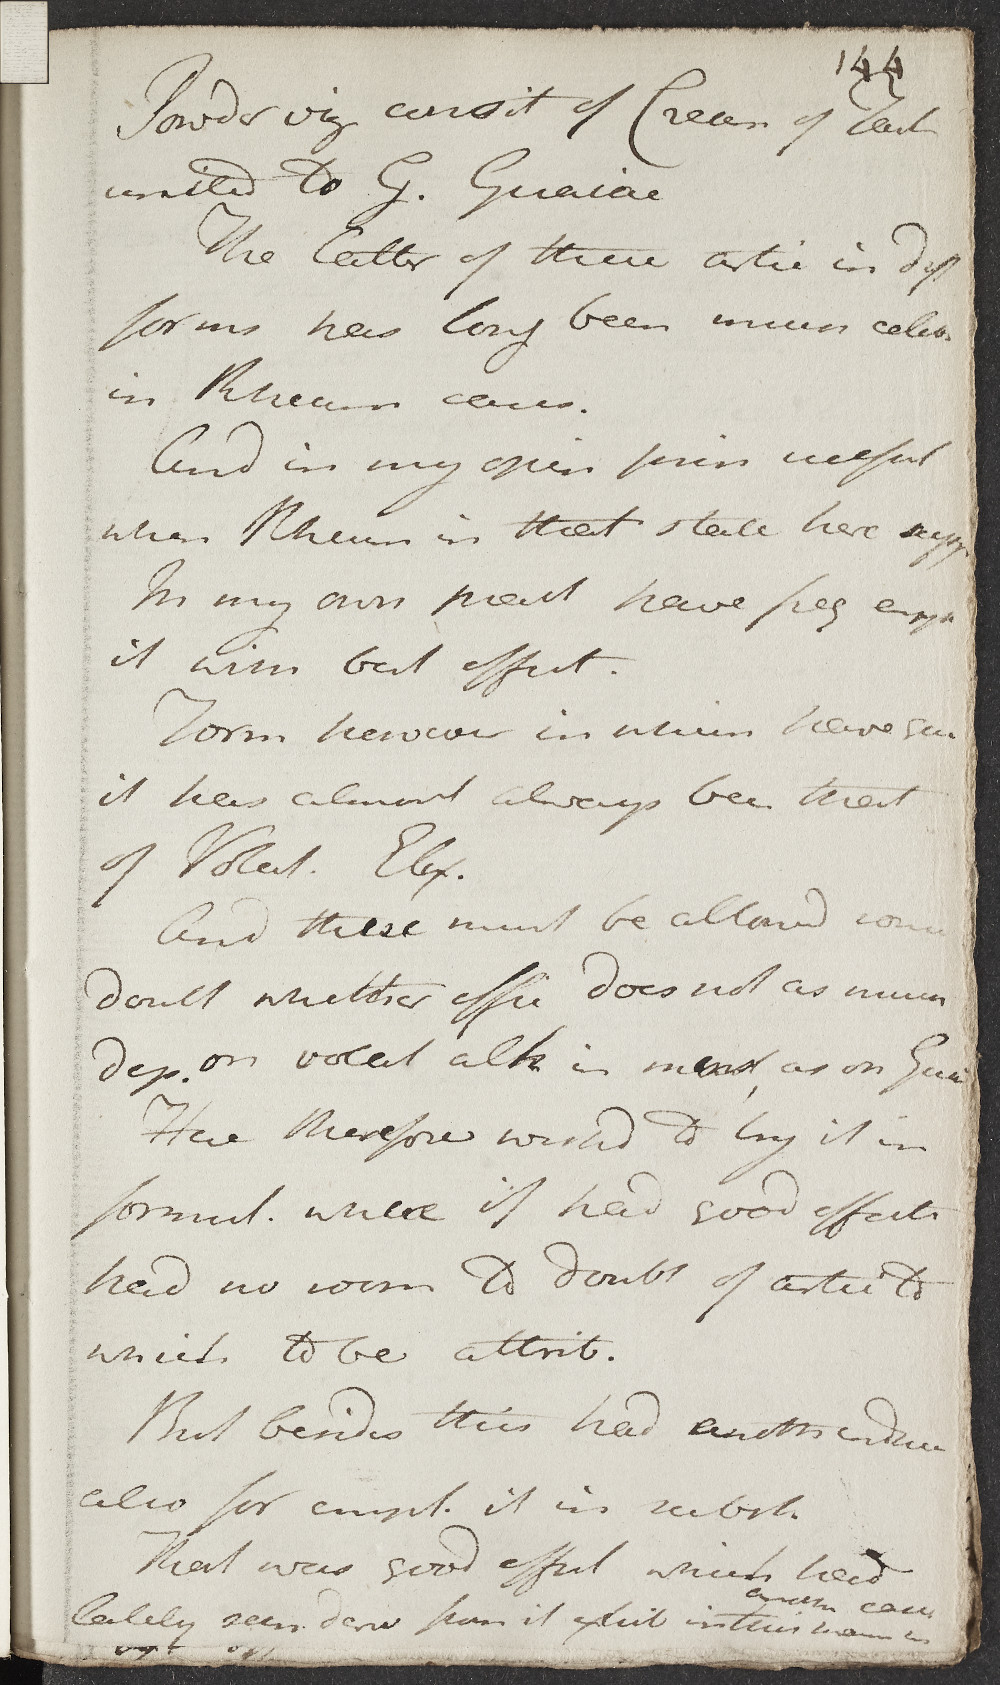 144
Powder viz consist of Cream of Tart
united to G. Guaiac
The latter of these artic in diff
forms has long been much celeb
in Rheum cases.
And in my opin partic useful
when Rheum in that state here supp
In my own pract have freq empl
it with best effect.
Form however in which have given
it has almost always been that
of Volat. Elix.
And there must be allowed some
doubt whether effic does not as much
dep. on volat alk in menst, as on Guai
Have therefore wished to try it in
formul. where if had good effects
had no room to doubt of artic to
which to be attrib.
But besides this had another induc
also for empl. it in subst.
That was good effect which had
lately seen deriv from it exhib in this mann in another case